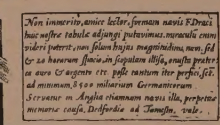 Non immerito, amice lector, formam navis F. Draci
huic nostræ tabulæ adjungi putavimus. miraculi enim
videri poterit, non solum hujus magnitudinis navi, sed
& 20 horarum spacio, in scopulum illisa, onusta præter
ea auro & argento etc potse tantum iter perfici. sed
ad minimum, 8500 miliarium Germanicorum
Servatur in Anglia etiamnum navis illa, perpetuæ
memoriæ causa, Detfordiæ ad Tamesin. vale.